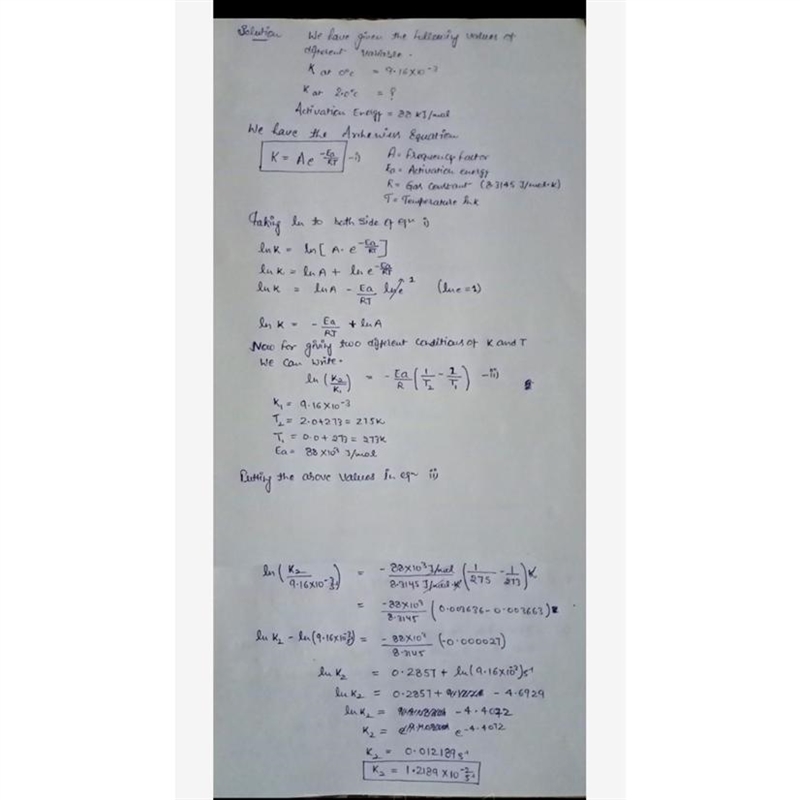 Solution We have given the following values of
different variable.
K at 0°c = 9.16×10⁻³
K at 2.0°c = ?
Activation Energy = 88 KJ/mol
We have the Arrhenius Equation
K = Ae^(-Ea/RT) —i)
A = Frequency factor
Ea = Activation energy
R = Gas constant (8.3145 J/mol·K)
T = Temperature in K
Taking ln to both side of eqn i)
ln K = ln[A· e^(-Ea/RT)]
ln K = ln A + ln e^(-Ea/RT)
ln K = ln A - Ea/RT ln e 1 (ln e = 1)
ln K = - Ea/RT + ln A
Now for giving two different conditions of K and T
We can write.
ln (K₂/K₁) = - Ea/R (1/T₂ - 1/T₁) —ii)
K₁ = 9.16×10⁻³
T₂ = 2.0+273 = 275K
T₁ = 0.0+273 = 273K
Ea = 88×10³ J/mol
Putting the above values in eqn ii)
ln (K₂/9.16×10⁻³ s⁻¹) = - 88×10³ J/mol / 8.3145 J/mol·K (1/275 - 1/273) K
= -88×10³/8.3145 (0.003636-0.003663)
ln K₂ - ln(9.16×10⁻³) = - 88×10³/8.3145 (-0.000027)
ln K₂ = 0.2857 + ln(9.16×10⁻³)s⁻¹
ln K₂ = 0.2857 + - 4.6929
ln K₂ = - 4.4072
K₂ = e^(-4.4072)
K₂ = 0.012189 s⁻¹
K₂ = 1.2189 ×10⁻² s⁻¹